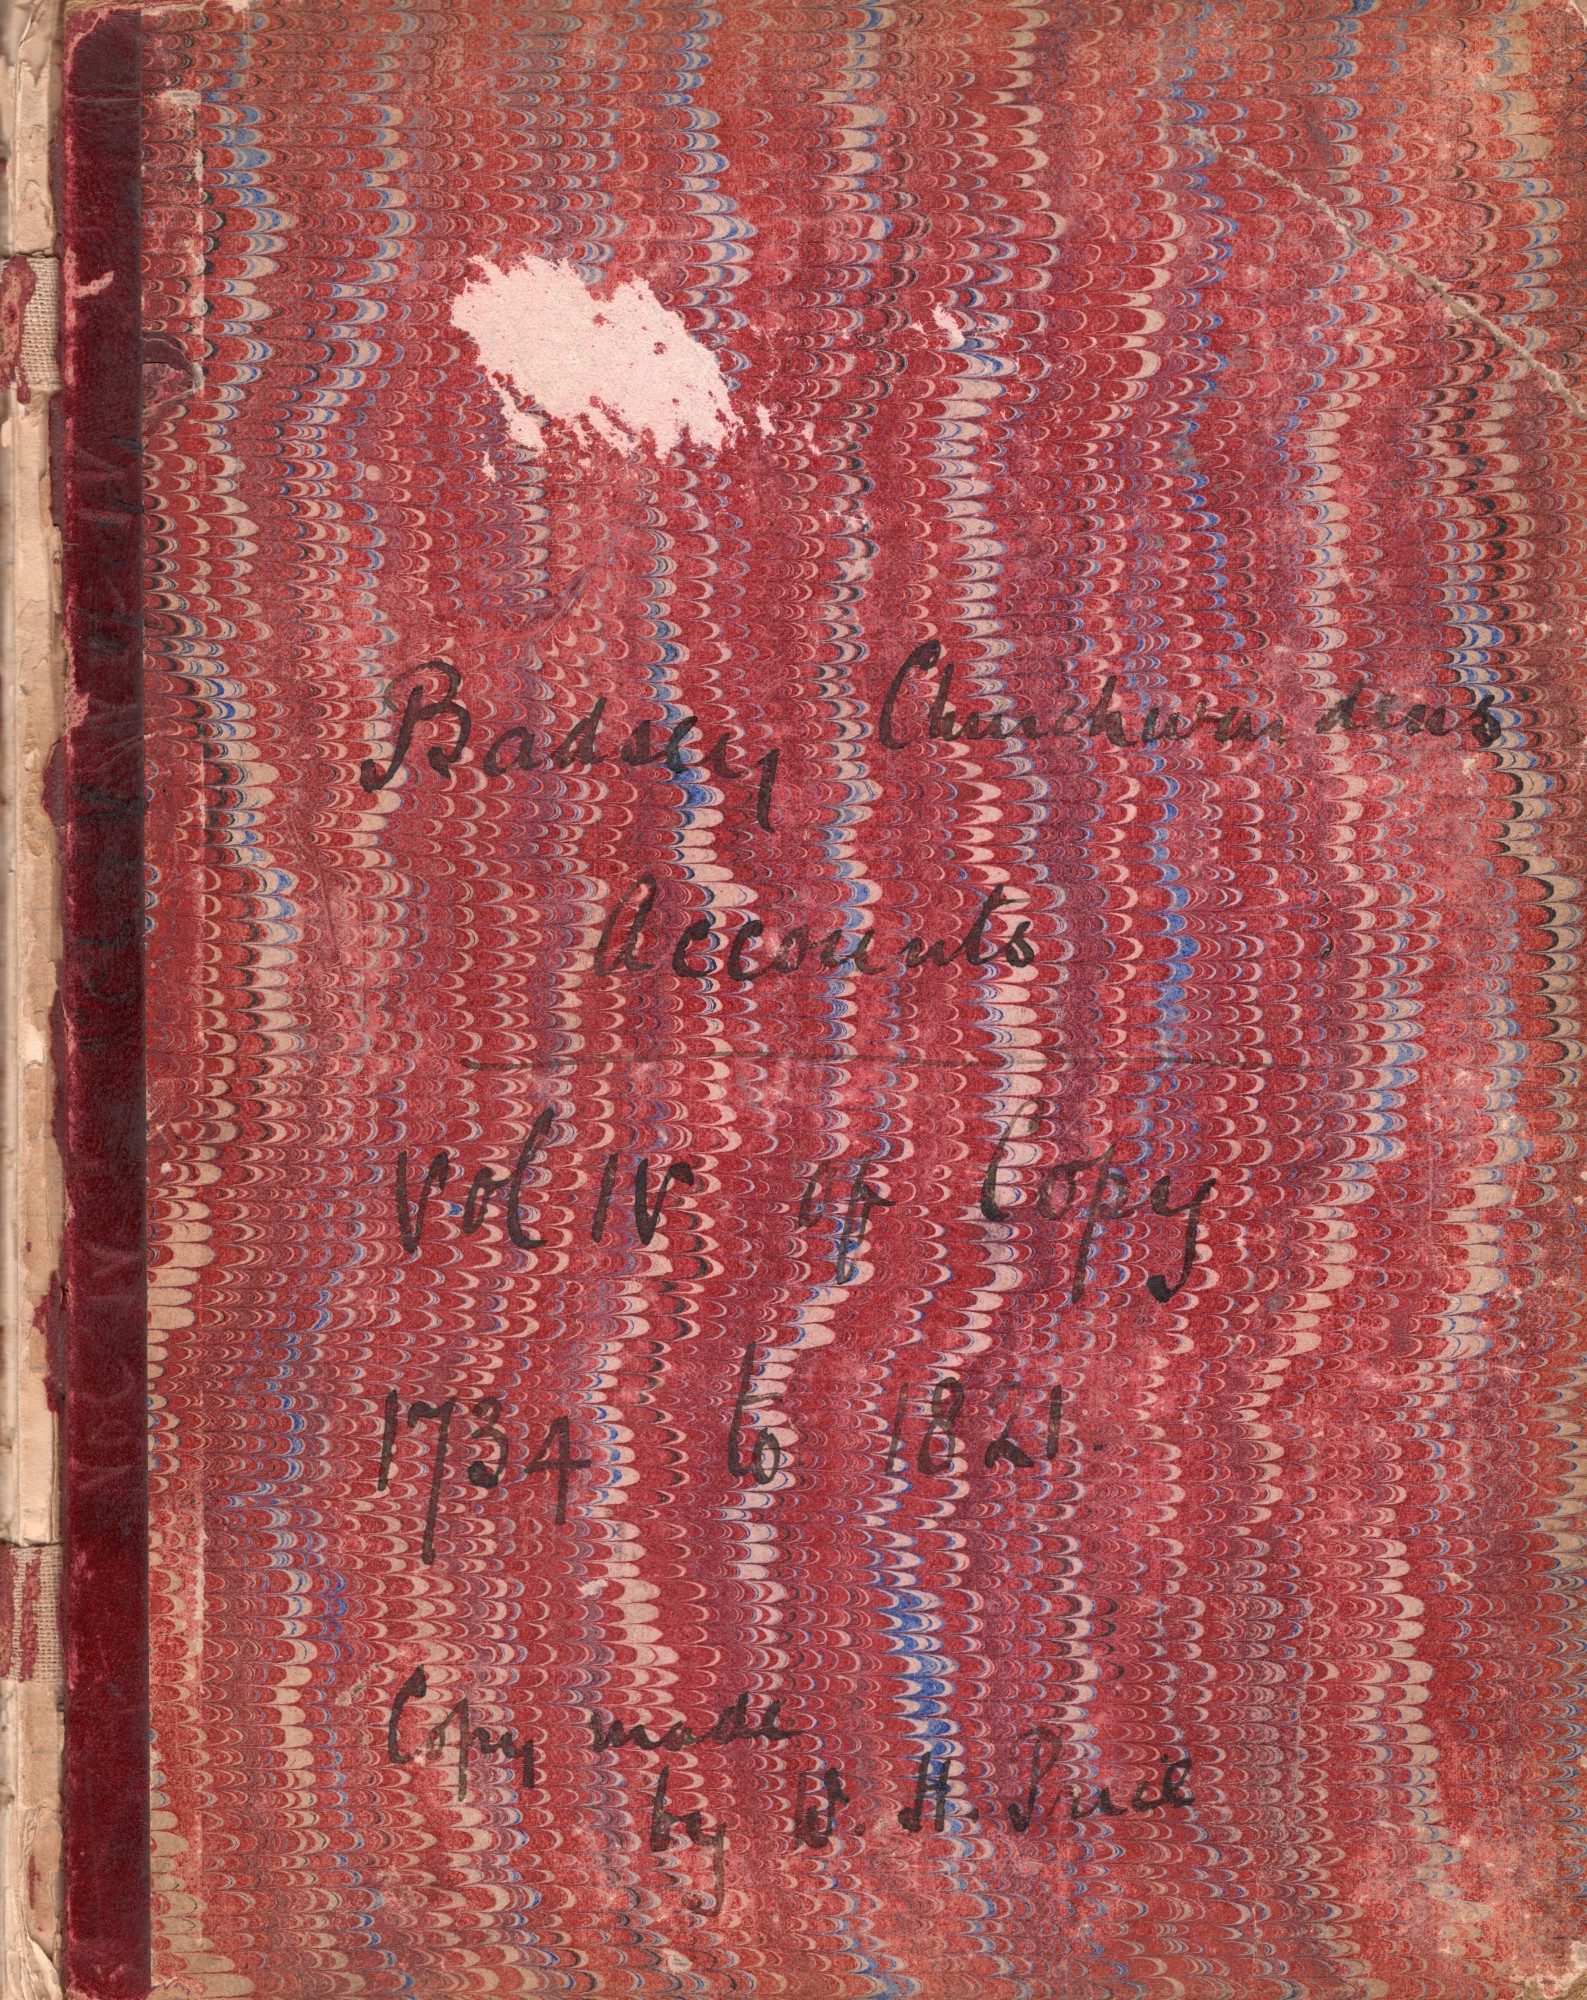 Badsey Churchwardens
Accounts
Vol IV of Copy
1734 to 1821.
Copy made
by W. H. Price